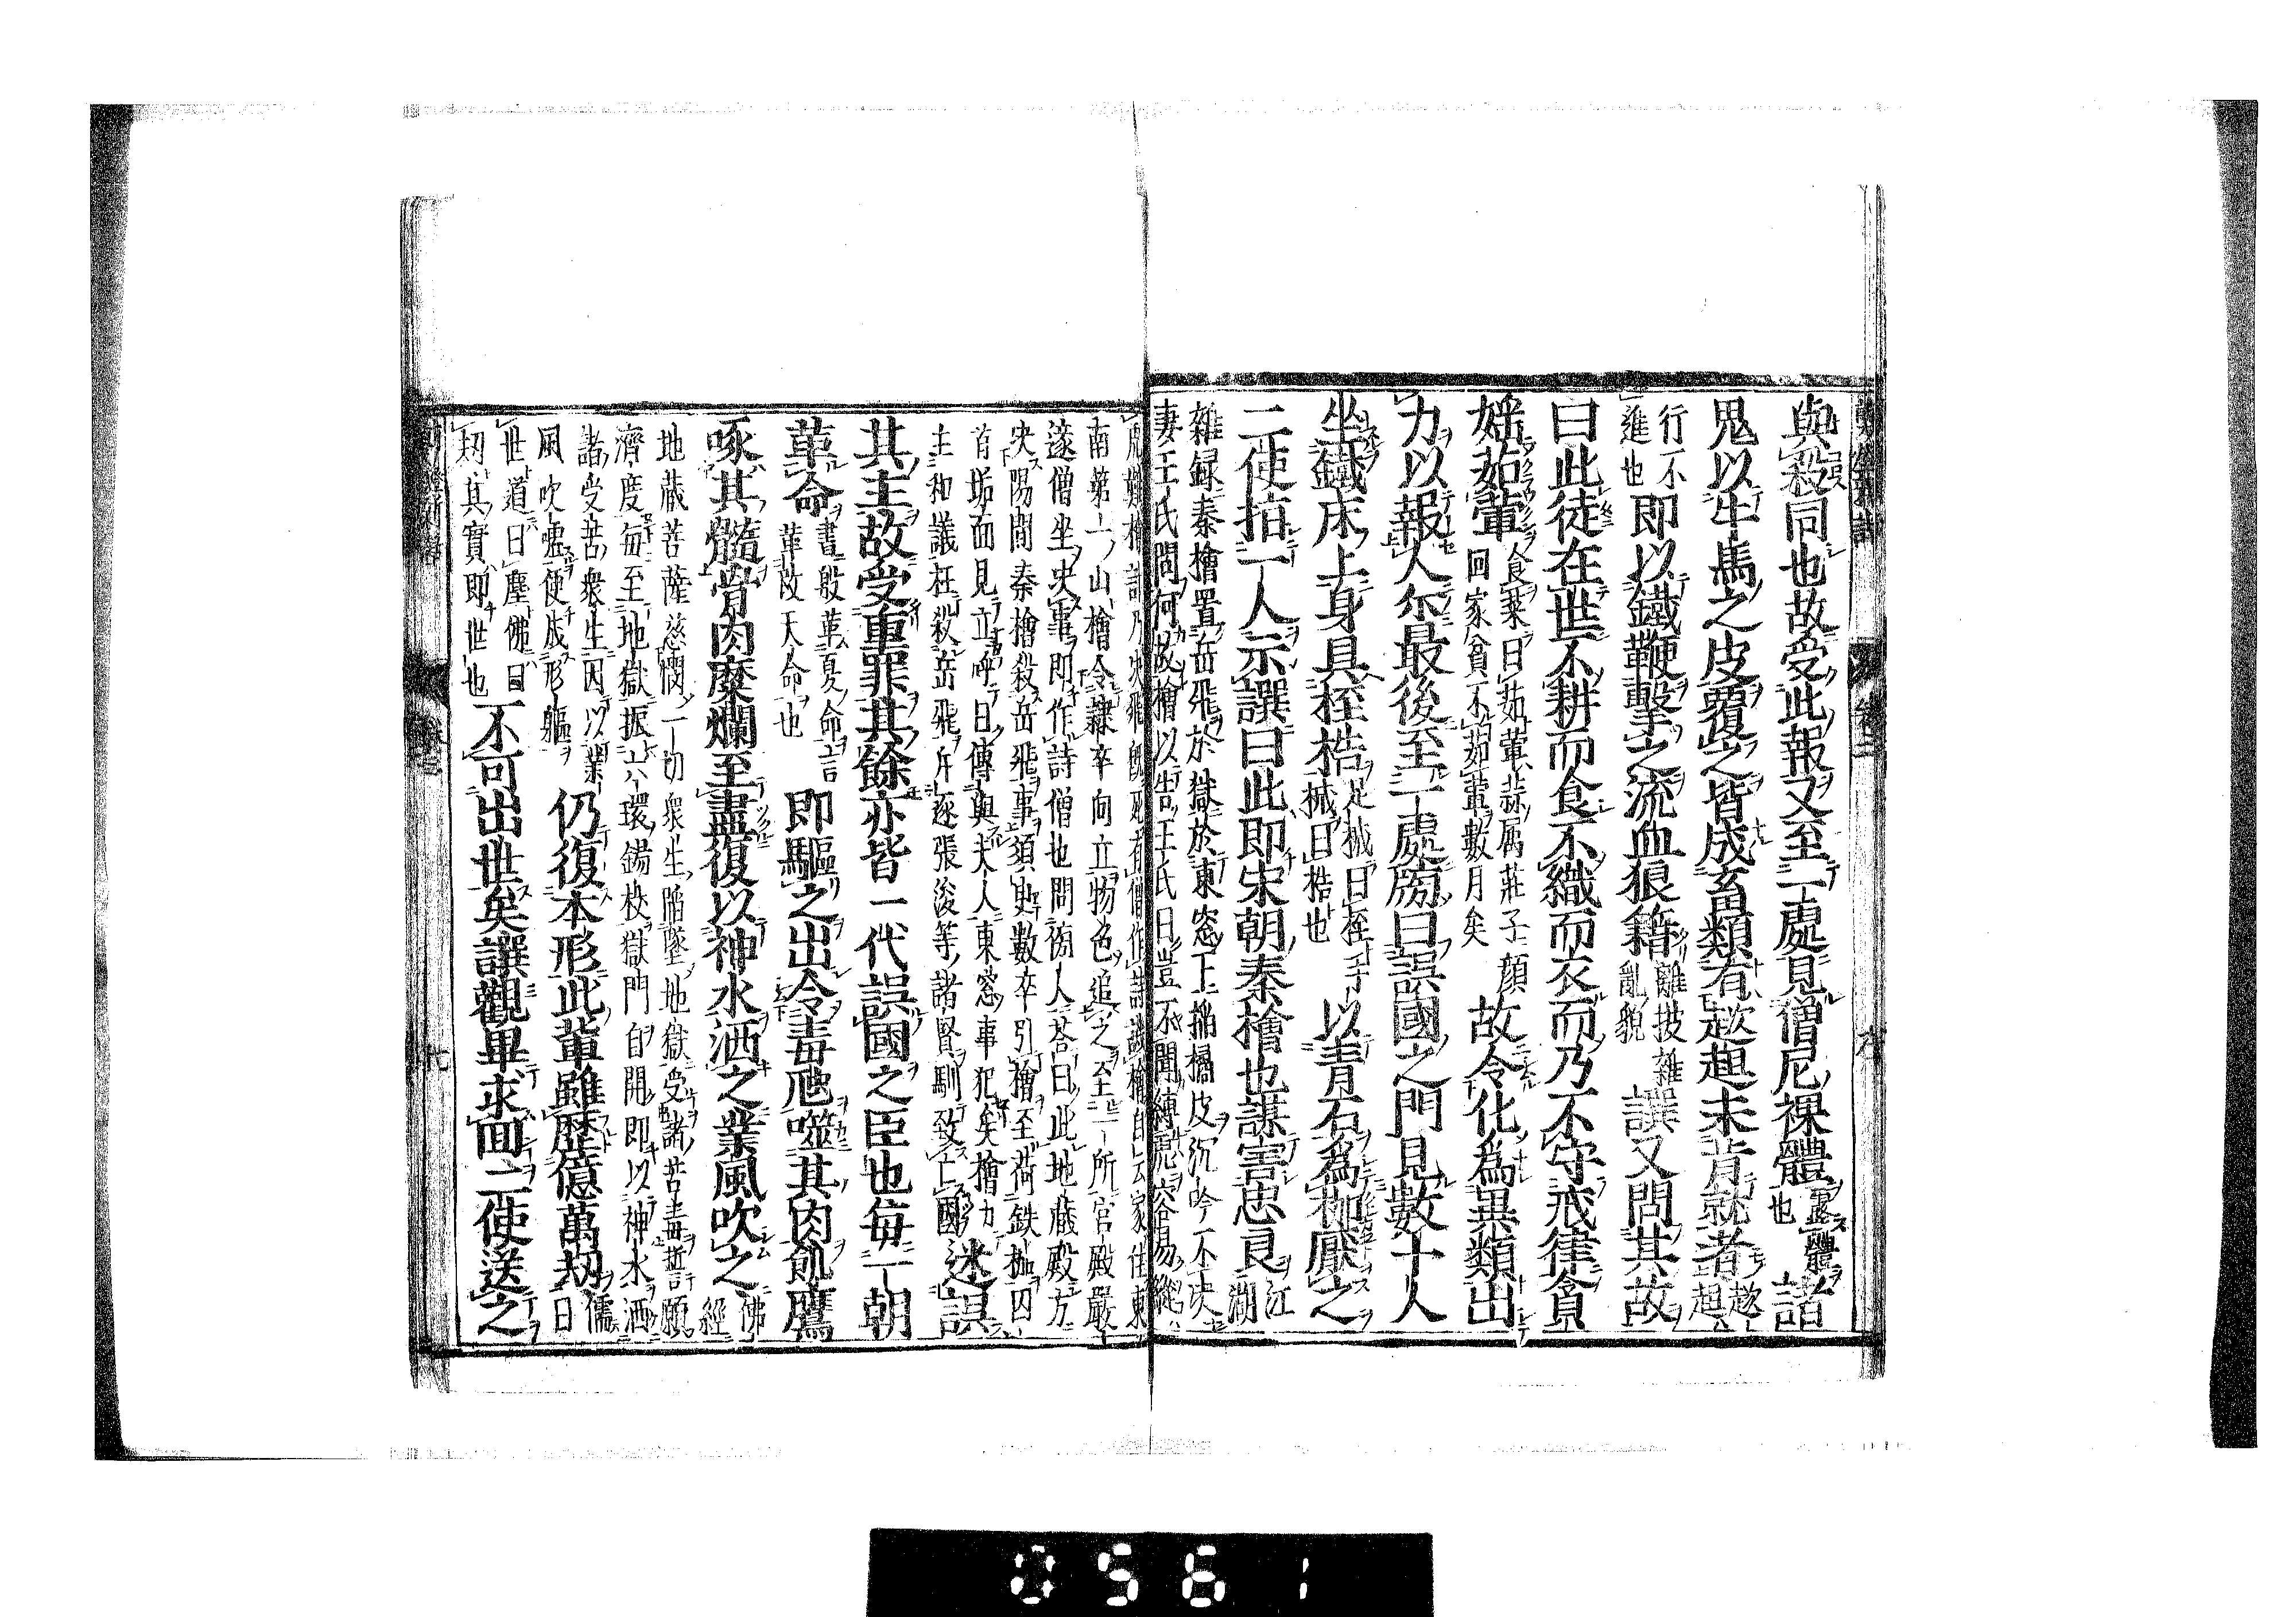 與殺同也故受此報又至一處見僧尼裸體露體也諸
鬼以牛馬之皮覆之皆成畜類有趑趄未肯就者趑趄
行不進也即以鐵鞭擊之流血狼籍離披雜亂貌譔又問其故
曰此徒在世不耕而食不織而衣而乃不守戒律貪
婬茹葷食菜曰茹葷蒜属莊子顔回家貧不茹葷數月矣故令化爲異類出
力以報人尓最後至一處牓曰誤國之門見數十人
坐鐵床上身具桎梏足械曰桎手械曰梏也以青石爲枷壓之
二使指一人示譔曰此即宋朝秦檜也謀害忠良江湖
雜録秦檜置岳飛於獄於東窓下搦橘皮沉吟不决
妻王氏問何故檜以告王氏曰豈不聞縛虎容易縱
虎難檜
南第一山檜令隷卒向立物色追之至一所官殿嚴
邃僧坐决事即作詩僧也問傍人荅曰此地藏殿方
决陽間秦檜殺岳飛事須臾數卒引檜至荷鉄枷囚
首垢面見立呼曰傳與夫人東窓事犯矣檜力
主和議枉殺岳飛斥逐張浚等諸賢馴致亡國迷誤
其主故受重罪其餘亦皆一代誤國之臣也毎一朝
革命書殷革夏命言革改天命也即驅之出令毒虺噬其肉飢鷹
啄其髓骨肉糜爛至盡復以神水洒之業風吹之佛經
地藏菩薩慈憫一切衆生陥墜地獄受諸苦毒誓願
濟度毎至地獄振六環錫杖獄門自開即以神水洒
諸受苦衆生因以業
風吹嘘便成形軀仍復本形此輩雖歷億萬刼儒曰
世道曰塵佛曰
刼其實即世也不可出世矣譔觀畢求囬二使送之
0561